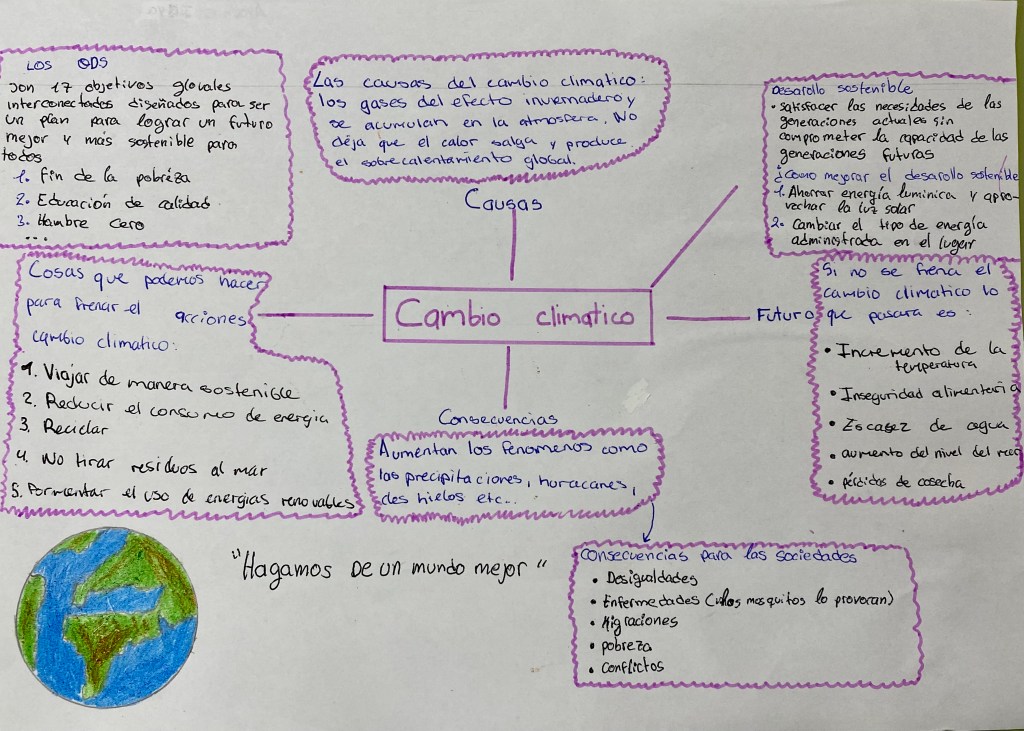 LOS ODS
Son 17 objetivos glovales
interconectados diseñados para ser
un plan para lograr un futuro
mejor y más sostenible para
todos
1. Fin de la pobreza
2. Educación de calidad
3. Hambre cero
...
Las causas del cambio climatico:
los gases del efecto invernadero y
se acumulan en la atmosfera. No
deja que el calor salga y produce
el sobrecalentamiento global.
Causas
Desarollo sostenible
• satisfacer las necesidades de las
generaciones actuales sin
comprometer la capacidad de las
generaciones futuras
¿Como mejorar el desarollo sostenible
1. Ahorrar energía luminica y apro-
vechar la luz solar
2. Cambiar el tipo de energía
administrada en el lugar
Cosas que podemos hacer
para frenar el
cambio climatico:
acciones
1. Viajar de manera sostenible
2. Reducir el consumo de energia
3. Reciclar
4. No tirar residuos al mar
5. Formentar el uso de energias renovables
Cambio climatico
Futuro
Si no se frena el
cambio climatico lo
que pasara es:
• Incremento de la
temperatura
• Inseguridad alimentaria
• Escasez de agua
• aumento del nivel del mar
• pérdidas de cosecha
Consecuencias
Aumentan los fenomenos como
las precipitaciones, huracanes,
des hielos etc...
"Hagamos De un mundo mejor"
Consecuencias para las sociedades
• Desigualdades
• Enfermedades ( mosquitos lo provocan)
• Migraciones
• pobreza
• conflictos